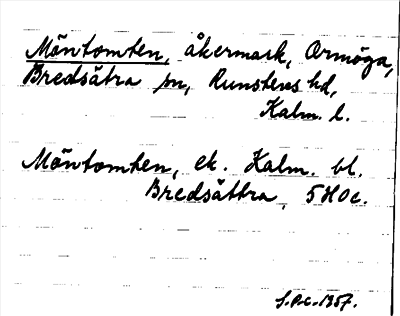 Möntomten, åkermark, Ormöga,
Bredsätra sn, Runstens hd,
Kalm. l.
Möntomten, ek. Kalm. bl.
Bredsättra, 5H0c.
1957.